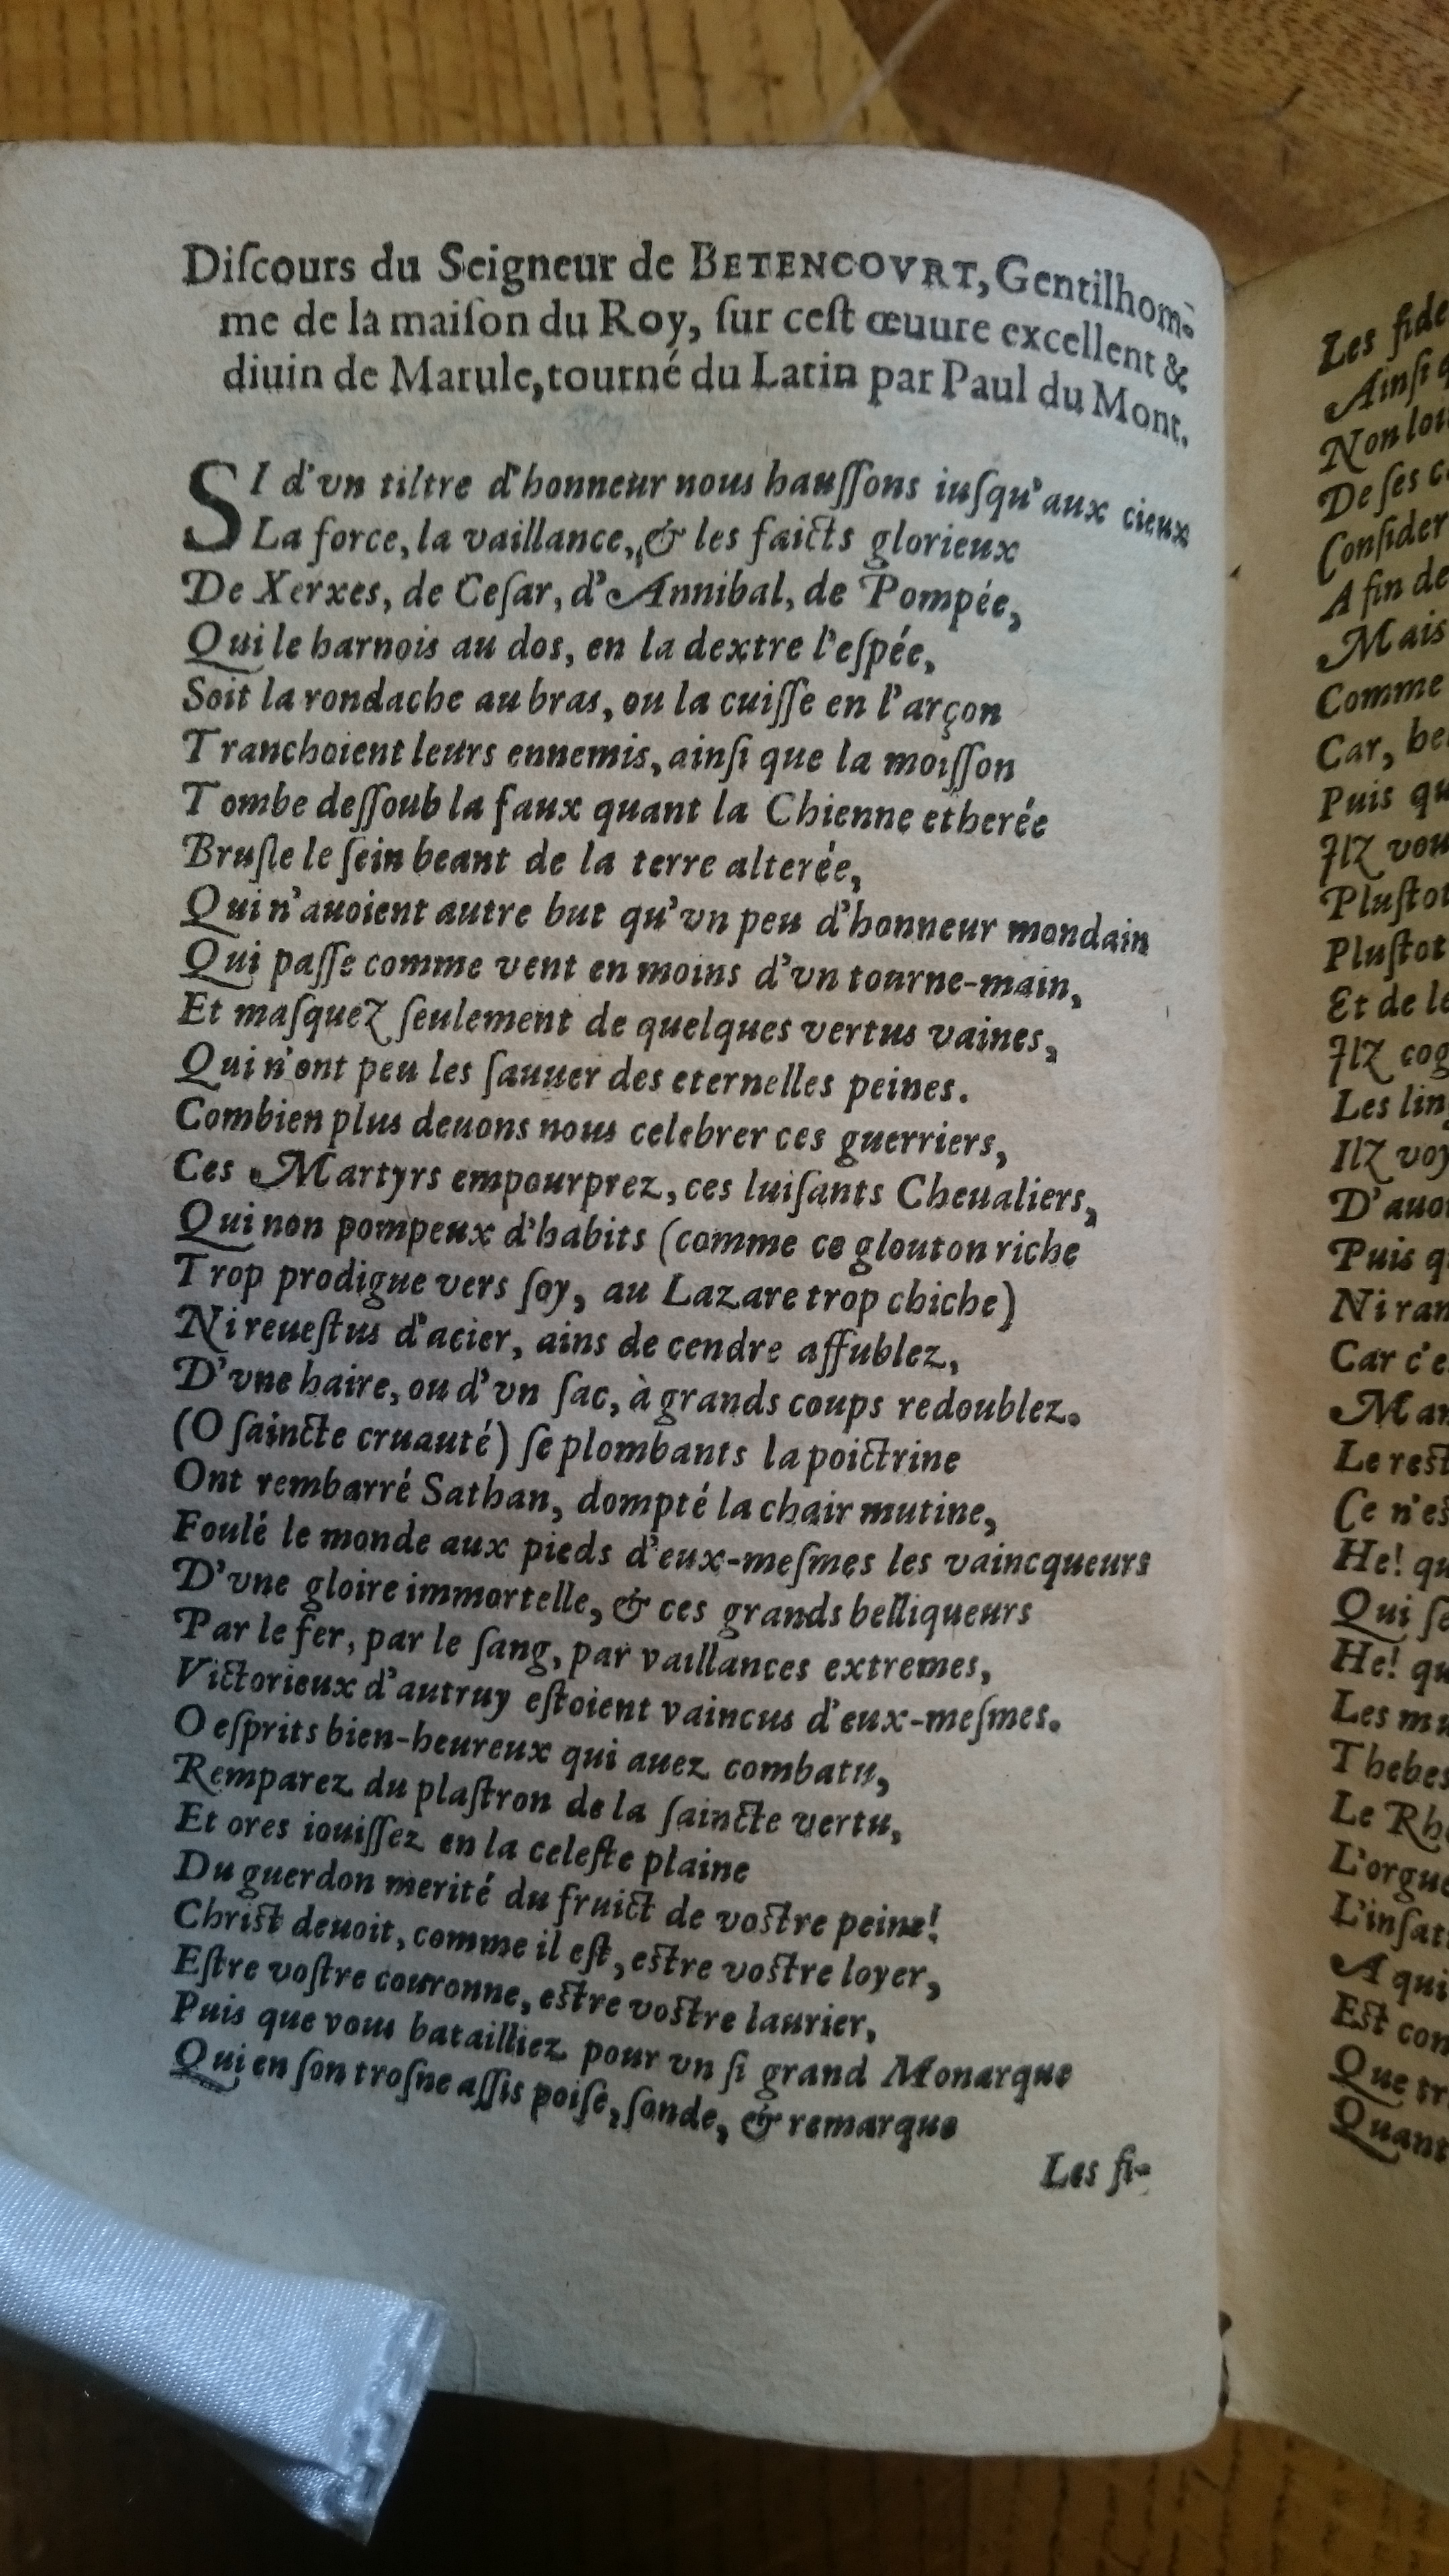 Diſcours du Seigneur de BETENCOVRT, Gentilhom-
me de la maiſon du Roy, ſur ceſt œuure excellent &
diuin de Marule, tourné du Latin par Paul du Mont.
SI d'vn tiltre d'honneur nous hauſſons iuſqu'aux cieux
La force, la vaillance, & les faicts glorieux
De Xerxes, de Ceſar, d'Annibal, de Pompée,
Qui le harnois au dos, en la dextre l'eſpée,
Soit la rondache au bras, ou la cuiſſe en l'arçon
Tranchoient leurs ennemis, ainſi que la moiſſon
Tombe deſſoub la faux quant la Chienne etherée
Bruſle le ſein beant de la terre alterée,
Qui n'auoient autre but qu'vn peu d'honneur mondain
Qui paſſe comme vent en moins d'vn tourne-main,
Et maſquez ſeulement de quelques vertus vaines,
Qui n'ont peu les ſauuer des eternelles peines.
Combien plus deuons nous celebrer ces guerriers,
Ces Martyrs empourprez, ces luiſants Cheualiers,
Qui non pompeux d'habits (comme ce glouton riche
Trop prodigue vers ſoy, au Lazare trop chiche)
Ni reueſtus d'acier, ains de cendre affublez,
D'vne haire, ou d'vn ſac, à grands coups redoublez.
(O ſaincte cruauté) ſe plombants la poictrine
Ont rembarré Sathan, dompté la chair mutine,
Foulé le monde aux pieds d'eux-meſmes les vaincqueurs
D'vne gloire immortelle, & ces grands belliqueurs
Par le fer, par le ſang, par vaillances extremes,
Victorieux d'autruy eſtoient vaincus d'eux-meſmes.
O eſprits bien-heureux qui auez combatu,
Remparez du plaſtron de la ſaincte vertu,
Et ores iouiſſez en la celeſte plaine
Du guerdon merité du fruict de voſtre peine!
Chriſt deuoit, comme il eſt, eſtre voſtre loyer,
Eſtre voſtre couronne, eſtre voſtre laurier,
Puis que vous batailliez pour vn ſi grand Monarque
Qui en ſon troſne aſſis poiſe, ſonde, & remarque
Les fi-
Les fide
Ainſi q
Non loi
De ſes c
Conſider
A fin de
Mais
Comme
Car, be
Puis qu
Ilz vou
Pluſtot
Pluſtot
Et de la
Ilz cog
Les lin
Ilz voy
D'auoi
Puis q
Ni ran
Car c'e
Mar
Le reſt
Ce n'eſ
He! qu
Qui ſe
He! qu
Les mu
Thebes
Le Rho
L'orgue
L'inſat
A qui
Eſt con
Que tr
Quant